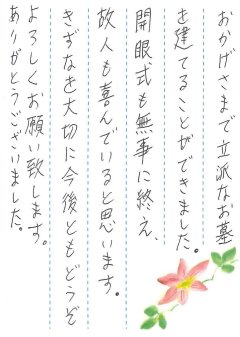 おかげさまで立派なお墓
を建てることができました。
開眼式も無事に終え、
故人も喜んでいると思います。
きずなを大切に今後ともどうぞ
よろしくお願い致します。
ありがとうございました。